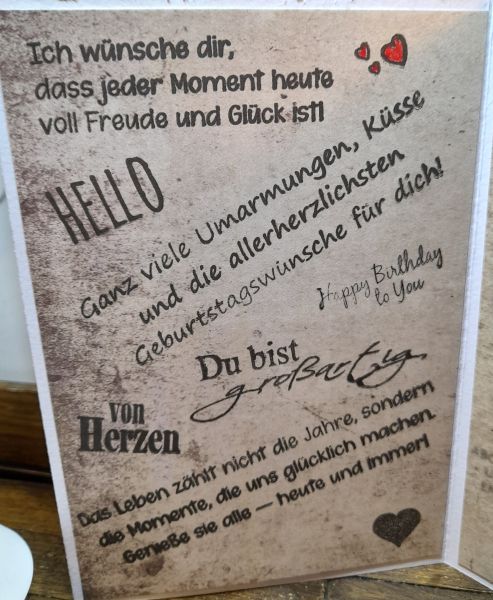 Ich wünsche dir,
dass jeder Moment heute
voll Freude und Glück ist!
HELLO
Ganz viele Umarmungen, Küsse
und die allerherzlichsten
Geburtstagswünsche für dich!
Happy Birthday
to You
Du bist
großartig.
von
Herzen
Das Leben zählt nicht die Jahre, sondern
die Momente, die uns glücklich machen.
Genieße sie alle – heute und immer!